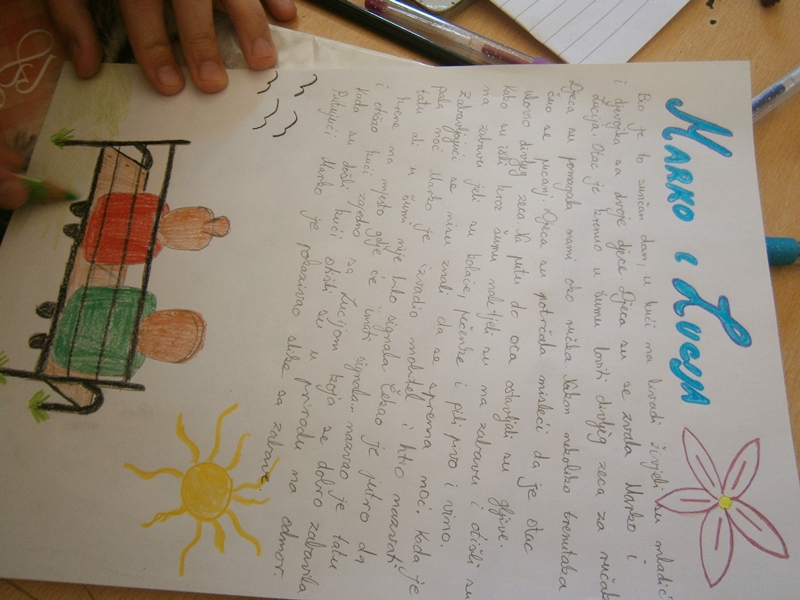 MARKO I LUCIJA
Bio je to sunčan dan, u kući na livadi živjeli su mladić
i djevojka sa dvoje djece. Djeca su se zvala Marko i
Lucija. Otac je krenuo u šumu loviti divljeg zeca za ručak
Djeca su pomagala mami oko ručka. Nakon nekoliko trenutaka
čuo se pucanj. Djeca su potrčala misleći da je otac
ulovio divljeg zeca. Na putu do oca ostavljali su gljive.
Kako su išli kroz šumu naletjeli su na zabavu i otišli su
na zabavu jeli su kolače, pečenke i pili pivo i vino.
Zabavljajući se nisu znali da se sprema noć, kada je
pala noć Marko je izvadio mobitel i htio nazvati
tatu ali u šumi nije bilo signala. Čekao je jutro da
krene na mjesto gdje će imati signala. nazvao je tatu
i otišao kući zajedno sa Lucijom koja se dobro zabavila
kada su došli kući otišli su u prirodu na odmor.
Putujući Marko je pokazivao slike sa zabave.